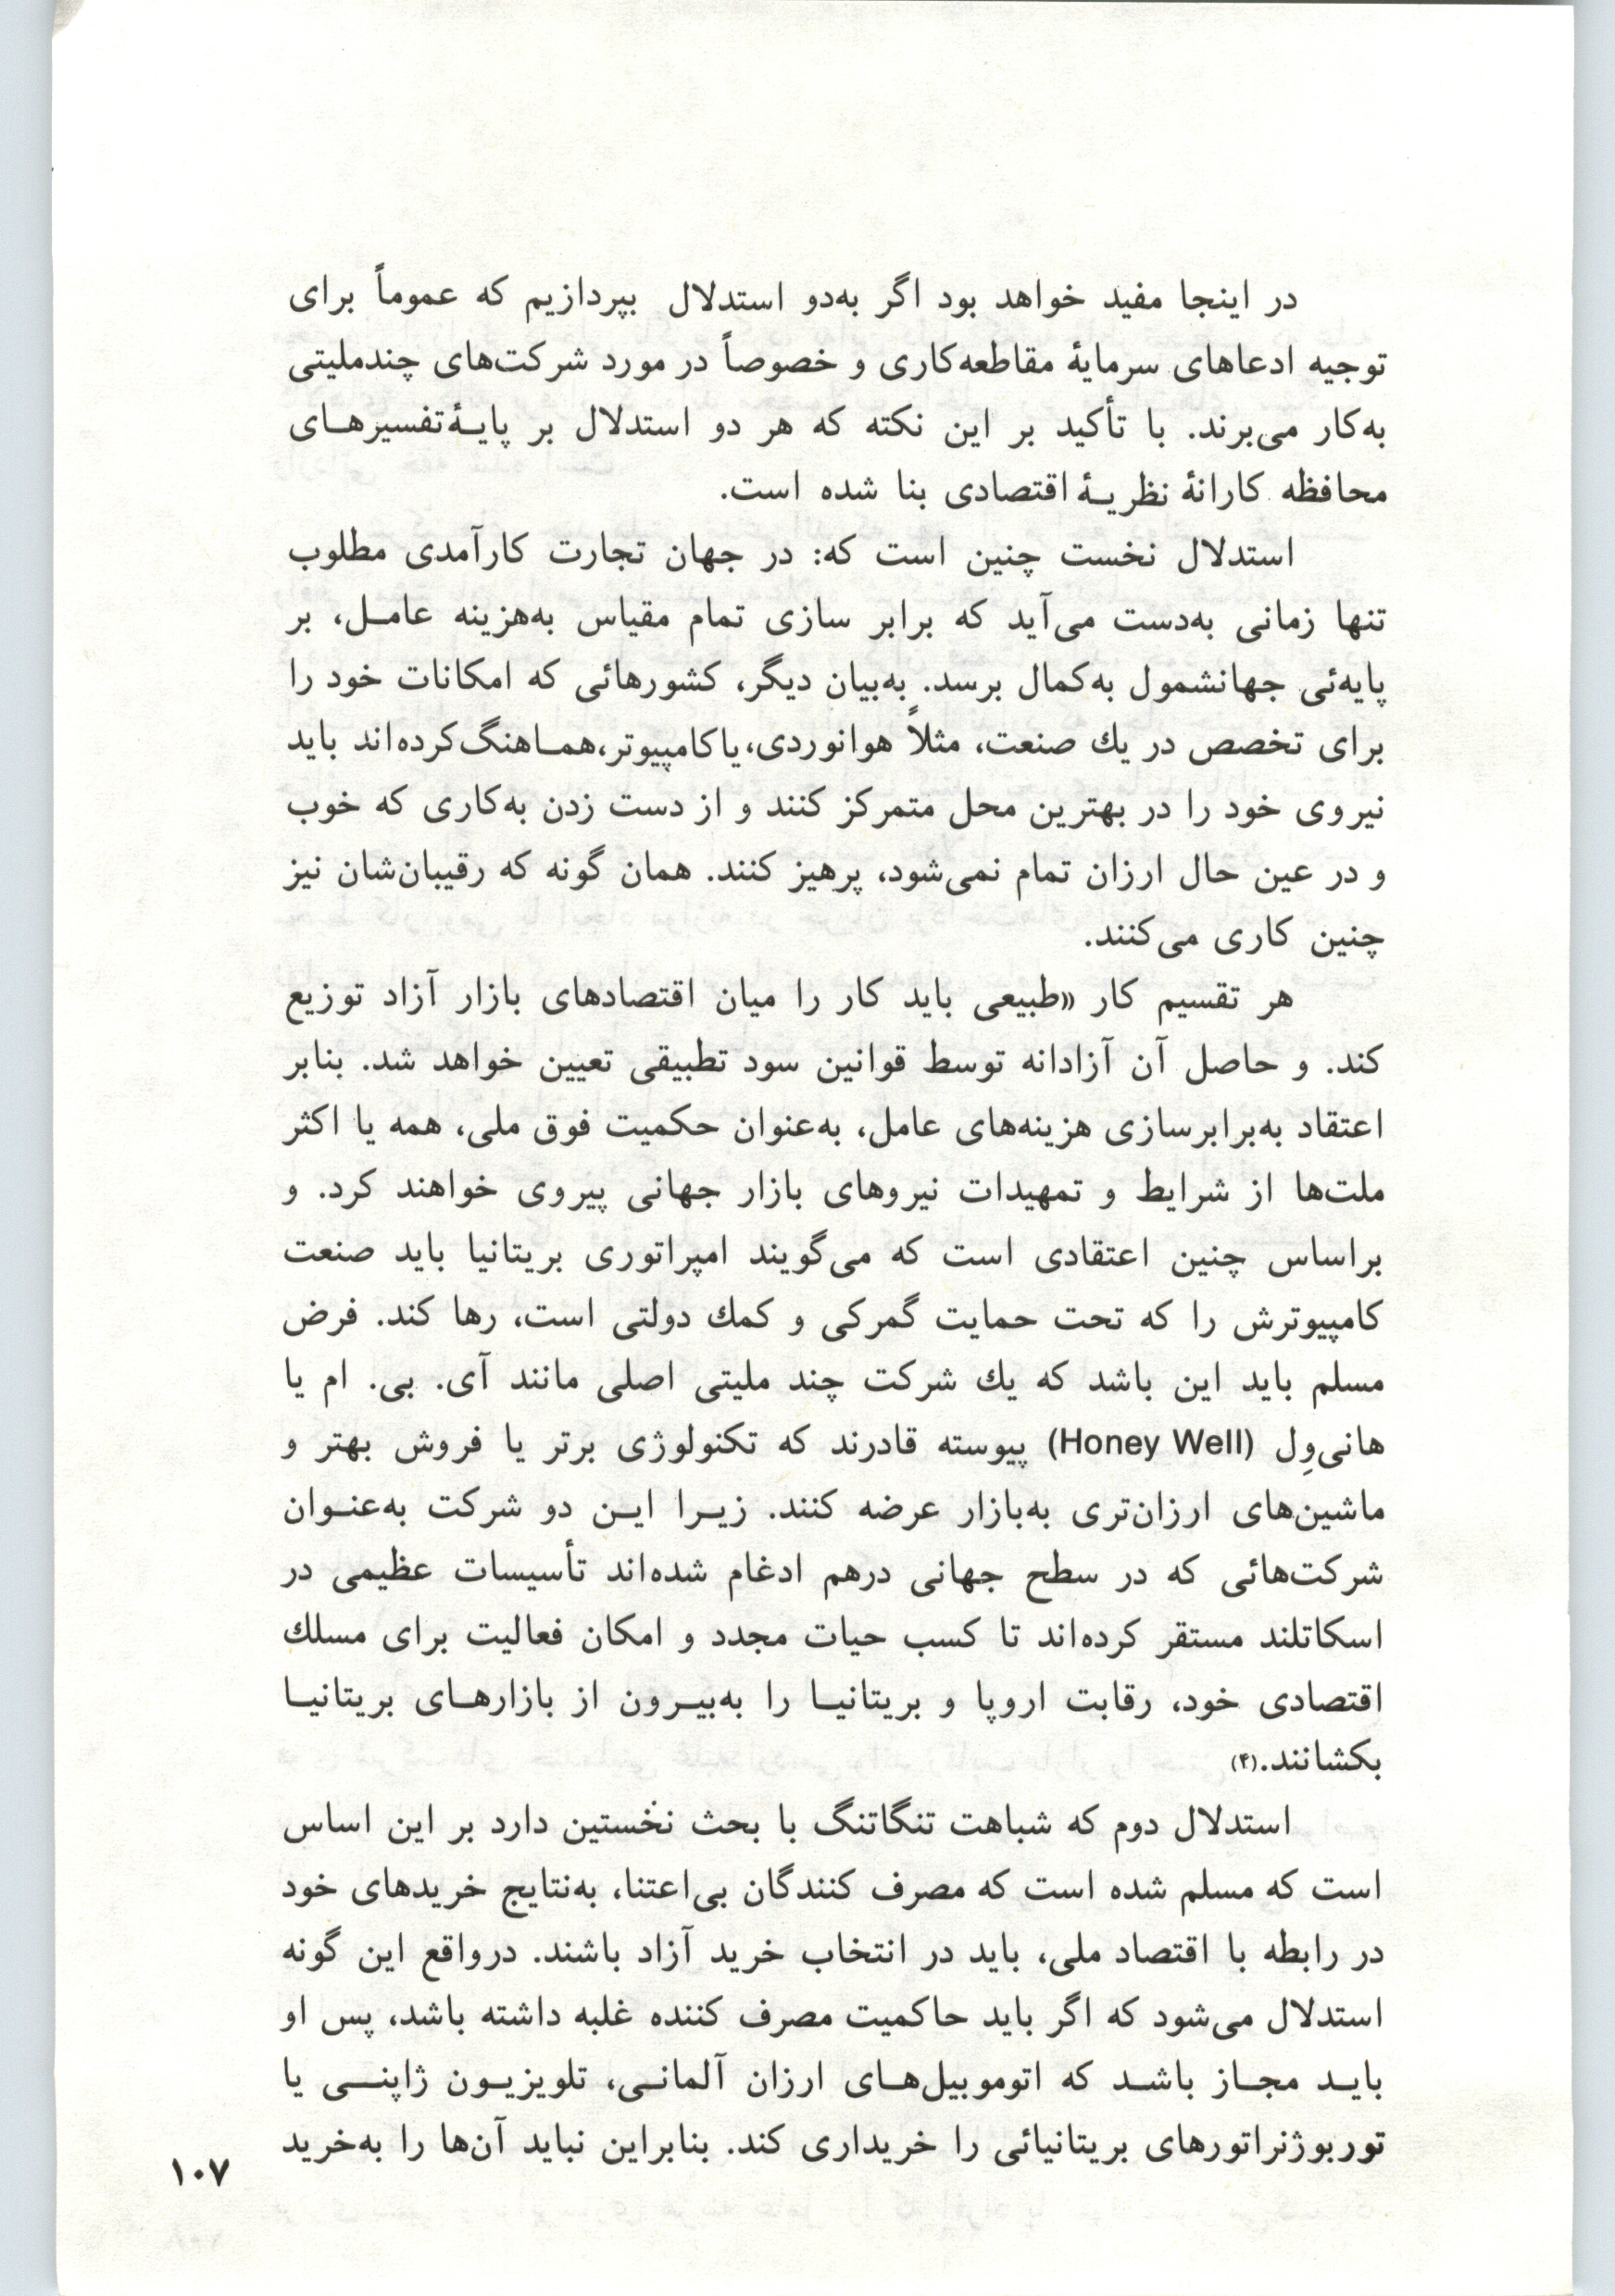 در اینجا مفید خواهد بود اگر به‌دو استدلال بپردازیم که عموماً برای
توجیه ادعاهای سرمایهٔ مقاطعه‌کاری و خصوصاً در مورد شرکت‌های چندملیتی
به‌کار می‌برند. با تأکید بر این نکته که هر دو استدلال بر پایـهٔ‌تفسیرهـای
محافظه کارانهٔ نظریـهٔ اقتصادی بنا شده است.
استدلال نخست چنین است که: در جهان تجارت کارآمدی مطلوب
تنها زمانی به‌دست می‌آید که برابر سازی تمام مقیاس به‌هزینه عامـل، بر
پایه‌ئی جهانشمول به‌کمال برسد. به‌بیان دیگر، کشورهائی که امکانات خود را
برای تخصص در یك صنعت، مثلاً هوانوردی، یا کامپیوتر، همـاهنگ کرده‌اند باید
نیروی خود را در بهترین محل متمرکز کنند و از دست زدن به‌کاری که خوب
و در عین حال ارزان تمام نمی‌شود، پرهیز کنند. همان گونه که رقیبان‌شان نیز
چنین کاری می‌کنند.
هر تقسیم کار «طبیعی باید کار را میان اقتصادهای بازار آزاد توزیع
کند. و حاصل آن آزادانه توسط قوانین سود تطبیقی تعیین خواهد شد. بنابر
اعتقاد به‌برابرسازی هزینه‌های عامل، به‌عنوان حکمیت فوق ملی، همه یا اکثر
ملت‌ها از شرایط و تمهیدات نیروهای بازار جهانی پیروی خواهند کرد. و
براساس چنین اعتقادی است که می‌گویند امپراتوری بریتانیا باید صنعت
کامپیوترش را که تحت حمایت گمرکی و کمك دولتی است، رها کند. فرض
مسلم باید این باشد که یك شرکت چند ملیتی اصلی مانند آی. بی. ام یا
هانی‌وِل (Honey Well) پیوسته قادرند که تکنولوژی برتر یا فروش بهتر و
ماشین‌های ارزان‌تری به‌بازار عرضه کنند. زیـرا ایـن دو شرکت به‌عنـوان
شرکت‌هائی که در سطح جهانی درهم ادغام شده‌اند تأسیسات عظیمی در
اسکاتلند مستقر کرده‌اند تا کسب حیات مجدد و امکان فعالیت برای مسلك
اقتصادی خود، رقابت اروپا و بریتانیـا را به‌بیـرون از بازارهـای بریتانیـا
بکشانند.(۴)
استدلال دوم که شباهت تنگاتنگ با بحث نخستین دارد بر این اساس
است که مسلم شده است که مصرف کنندگان بی‌اعتنا، به‌نتایج خریدهای خود
در رابطه با اقتصاد ملی، باید در انتخاب خرید آزاد باشند. درواقع این گونه
استدلال می‌شود که اگر باید حاکمیت مصرف کننده غلبه داشته باشد، پس او
بایـد مجـاز باشـد که اتوموبیل‌هـای ارزان آلمانـی، تلویزیـون ژاپنـی یا
توربوژنراتورهای بریتانیائی را خریداری کند. بنابراین نباید آن‌ها را به‌خرید
۱۰۷